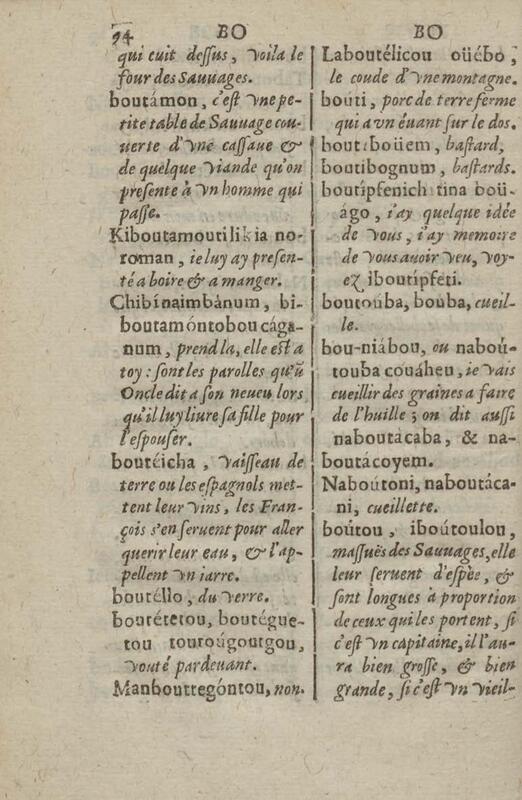 94 BO BO
qui cuit dessus, voila le
four des Sauuages.
boutámon, c'est vne pe-
tite table de Sauuage cou-
uerte d'vne cassaue &
de quelque viande qu'on
presente à vn homme qui
passe.
Kiboutamoutilikia no-
roman, ie luy ay presen-
té a boire & a manger.
Chibínaimbánum, bi-
boutamóntobou cága-
num, prend la, elle est a
toy : sont les parolles qu'ũ
Oncle dit a son neueu lors
qu'il luy liure sa fille pour
l'espouser.
boutéicha, vaisseau de
terre ou les espagnols met-
tent leur vins, les Fran-
çois s'en seruent pour aller
querir leur eau, & l'ap-
pellent vn iarre.
boutéllo, du verre.
boutétetou, boutégue-
tou touroúgoutgou,
vouté pardeuant.
Manbouttegóntou, non.
Laboutélicou oüébo,
le coude d'vne montagne.
boúti, porc de terre ferme
qui a vn éuant sur le dos.
boutiboüem, bastard,
boutibognum, bastards.
boutipfenich tina boü-
ágo, i'ay quelque idée
de vous, i'ay memoire
de vous auoir veu, voy-
ez iboutipfeti.
boutoúba, boúba, cueil-
le.
bou-niábou, ou naboú-
touba couáheu, ie vais
cueillir des graines a faire
de l'huille ; on dit aussi
naboutácaba, & na-
boutácoyem.
Naboútoni, naboutáca-
ni, cueillette.
boútou, iboútoulou,
massuës des Sauuages, elle
leur seruent d'espèe, &
sont longues à proportion
de ceux qui les portent, si
c'est vn capitaine, il l'au-
ra bien grosse, & bien
grande, si c'est vn vieil-